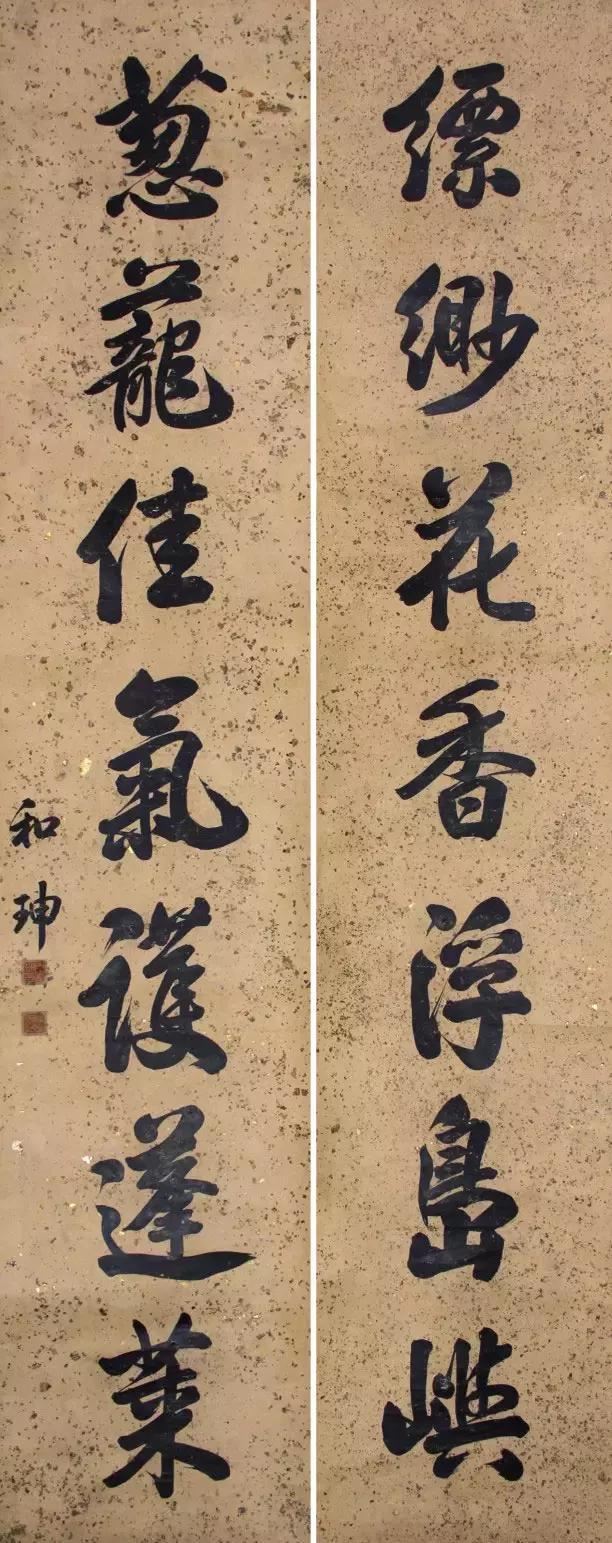 缥缈花香浮島嶼
蔥蘢佳氣護蓬萊
和珅